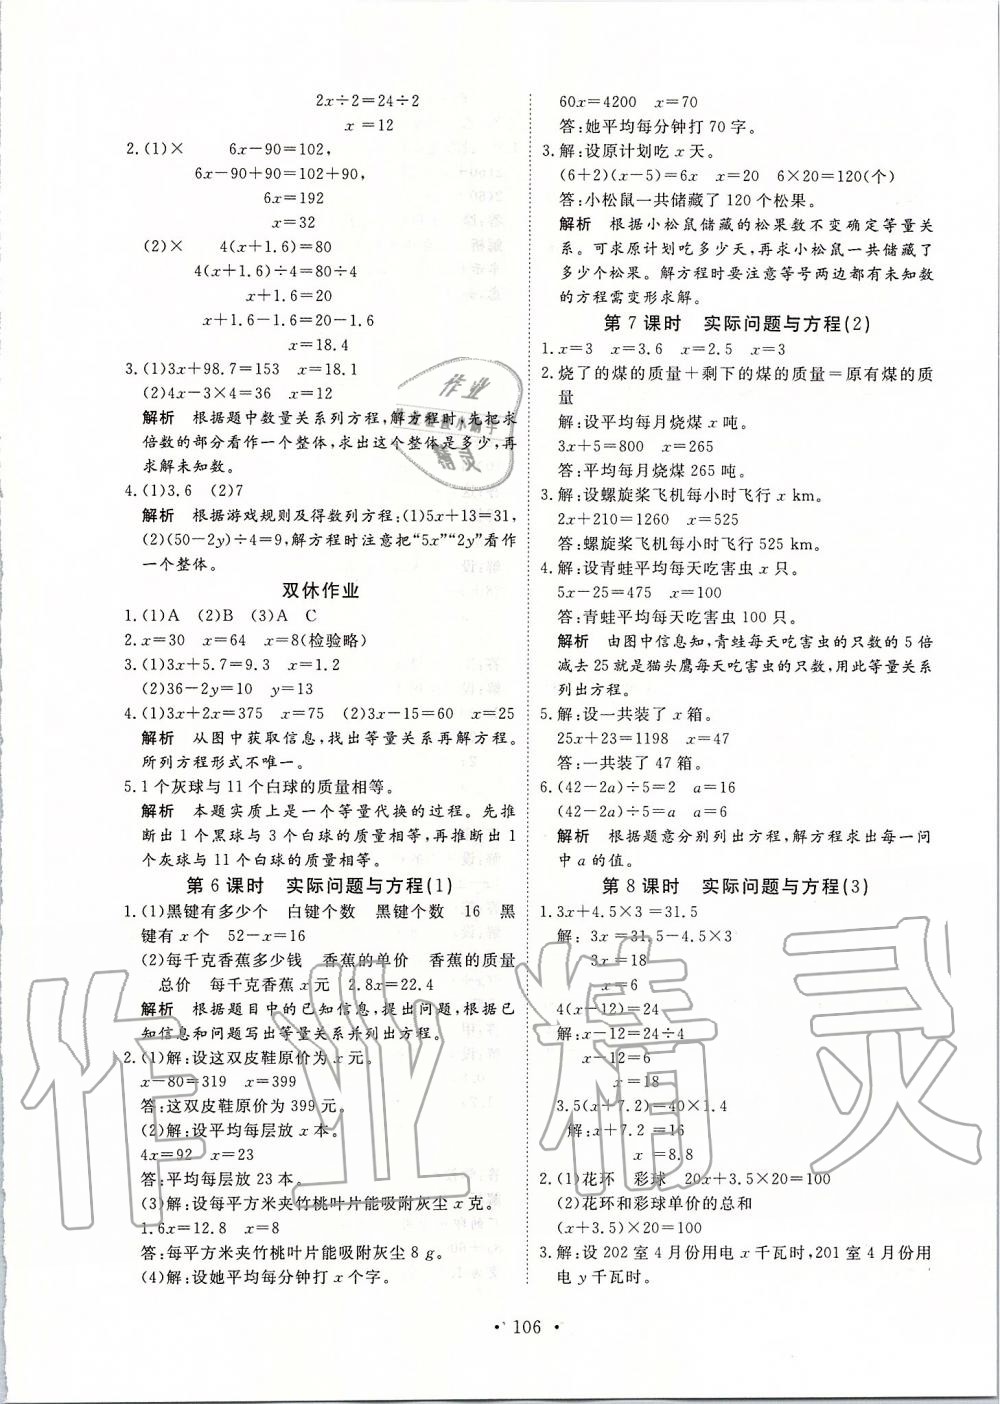 2x÷2=24÷2
x=12
2.(1)× 6x-90=102,
6x-90+90=102+90,
6x=192
x=32
(2)× 4(x+1.6)=80
4(x+1.6)÷4=80÷4
x+1.6=20
x+1.6-1.6=20-1.6
x=18.4
3.(1)3x+98.7=153 x=18.1
(2)4x-3×4=36 x=12
解析 根据题中数量关系列方程,解方程时,先把求
倍数的部分看作一个整体,求出这个整体是多少,再
求解未知数。
4.(1)3.6 (2)7
解析 根据游戏规则及得数列方程:(1)5x+13=31,
(2)(50-2y)÷4=9,解方程时注意把“5x”“2y”看作
一个整体。
双休作业
1.(1)A (2)B (3)A C
2.x=30 x=64 x=8(检验略)
3.(1)3x+5.7=9.3 x=1.2
(2)36-2y=10 y=13
4.(1)3x+2x=375 x=75 (2)3x-15=60 x=25
解析 从图中获取信息,找出等量关系再解方程。
所列方程形式不唯一。
5.1个灰球与11个白球的质量相等。
解析 本题实质上是一个等量代换的过程。先推
断出1个黑球与3个白球的质量相等,再推断出1
个灰球与11个白球的质量相等。
第6课时 实际问题与方程(1)
1.(1)黑键有多少个 白键个数 黑键个数 16 黑
键有x个 52-x=16
(2)每千克香蕉多少钱 香蕉的单价 香蕉的质量
总价 每千克香蕉x元 2.8x=22.4
解析 根据题目中的已知信息,提出问题,根据已
知信息和问题写出等量关系并列出方程。
2.(1)解:设这双皮鞋原价为x元。
x-80=319 x=399
答:这双皮鞋原价为399元。
(2)解:设平均每层放x本。
4x=92 x=23
答:平均每层放23本。
(3)解:设每平方米夹竹桃叶片能吸附灰尘x克。
1.6x=12.8 x=8
答:每平方米夹竹桃叶片能吸附灰尘8g。
(4)解:设她平均每分钟打x个字。
60x=4200 x=70
答:她平均每分钟打70字。
3.解:设原计划吃x天。
(6+2)(x-5)=6x x=20 6×20=120(个)
答:小松鼠一共储藏了120个松果。
解析 根据小松鼠储藏的松果数不变确定等量关
系。可求原计划吃多少天,再求小松鼠一共储藏了
多少个松果。解方程时要注意等号两边都有未知数
的方程需变形求解。
第7课时 实际问题与方程(2)
1.x=3 x=3.6 x=2.5 x=3
2.烧了的煤的质量+剩下的煤的质量=原有煤的质
量
解:设平均每月烧煤x吨。
3x+5=800 x=265
答:平均每月烧煤265吨。
3.解:设螺旋桨飞机每小时飞行x km。
2x+210=1260 x=525
答:螺旋桨飞机每小时飞行525 km。
4.解:设青蛙平均每天吃害虫x只。
5x-25=475 x=100
答:青蛙平均每天吃害虫100只。
解析 由图中信息知,青蛙每天吃害虫的只数的5倍
减去25就是猫头鹰每天吃害虫的只数,用此等量关系
列出方程。
5.解:设一共装了x箱。
25x+23=1198 x=47
答:一共装了47箱。
6.(42-2a)÷5=2 a=16
(42-2a)÷5=4 a=11
解析 根据题意分别列出方程,解方程求出每一问
中a的值。
第8课时 实际问题与方程(3)
1.3x+4.5×3=31.5
解: 3x=31.5-4.5×3
3x=18
x=6
4(x-12)=24
解:x-12=24÷4
x-12=6
x=18
3.5(x+7.2)=40×1.4
解:x+7.2=16
x=8.8
2.(1)花环 彩球 20x+3.5×20=100
(2)花环和彩球单价的总和
(x+3.5)×20=100
3.解:设202室4月份用电x千瓦时,201室4月份用
电y千瓦时。
• 106 •
作业
精灵
作业精灵